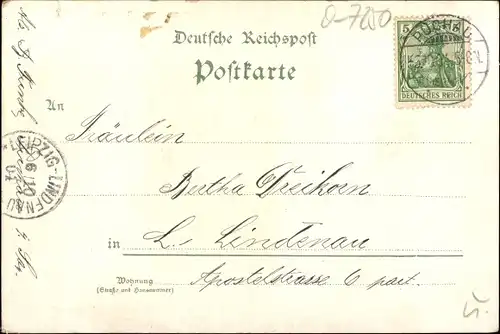 D-7250
Deutsche Reichspost
Postkarte
PÜCHAU
5
5
DEUTSCHES REICH
An
Fräulein
Bertha Dreikorn
in L. Lindenau
Wohnung
(Straße und Hausnummer)
Apostelstrasse 6 part.
LEIPZIG-LINDENAU
6/10